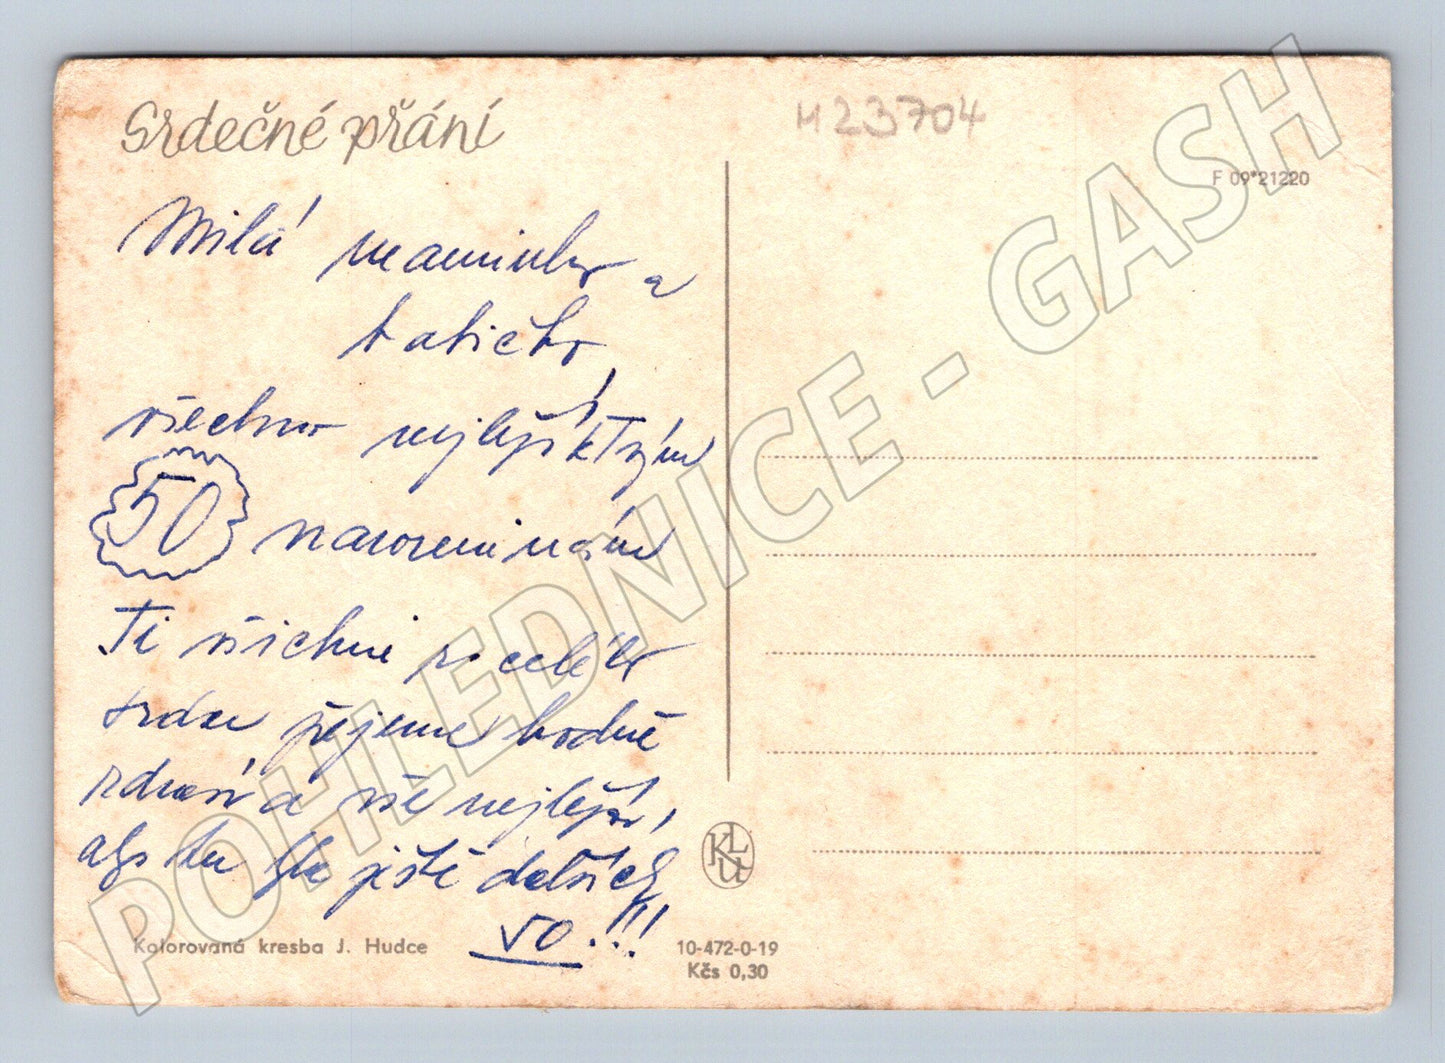 Srdečné přání
M 23704
F 09*21220
Milá maminko a
tatíčku,
všechno nejlepší k Tvým
50 narozeninám
Ti všichni z celého
srdce přejeme hodně
zdraví a vše nejlepší,
aby tu byla ještě dalších
50.!!!
KLU
Kolorovaná kresba J. Hudce
10-472-0-19
Kčs 0,30
POHLEDNICE - GASH